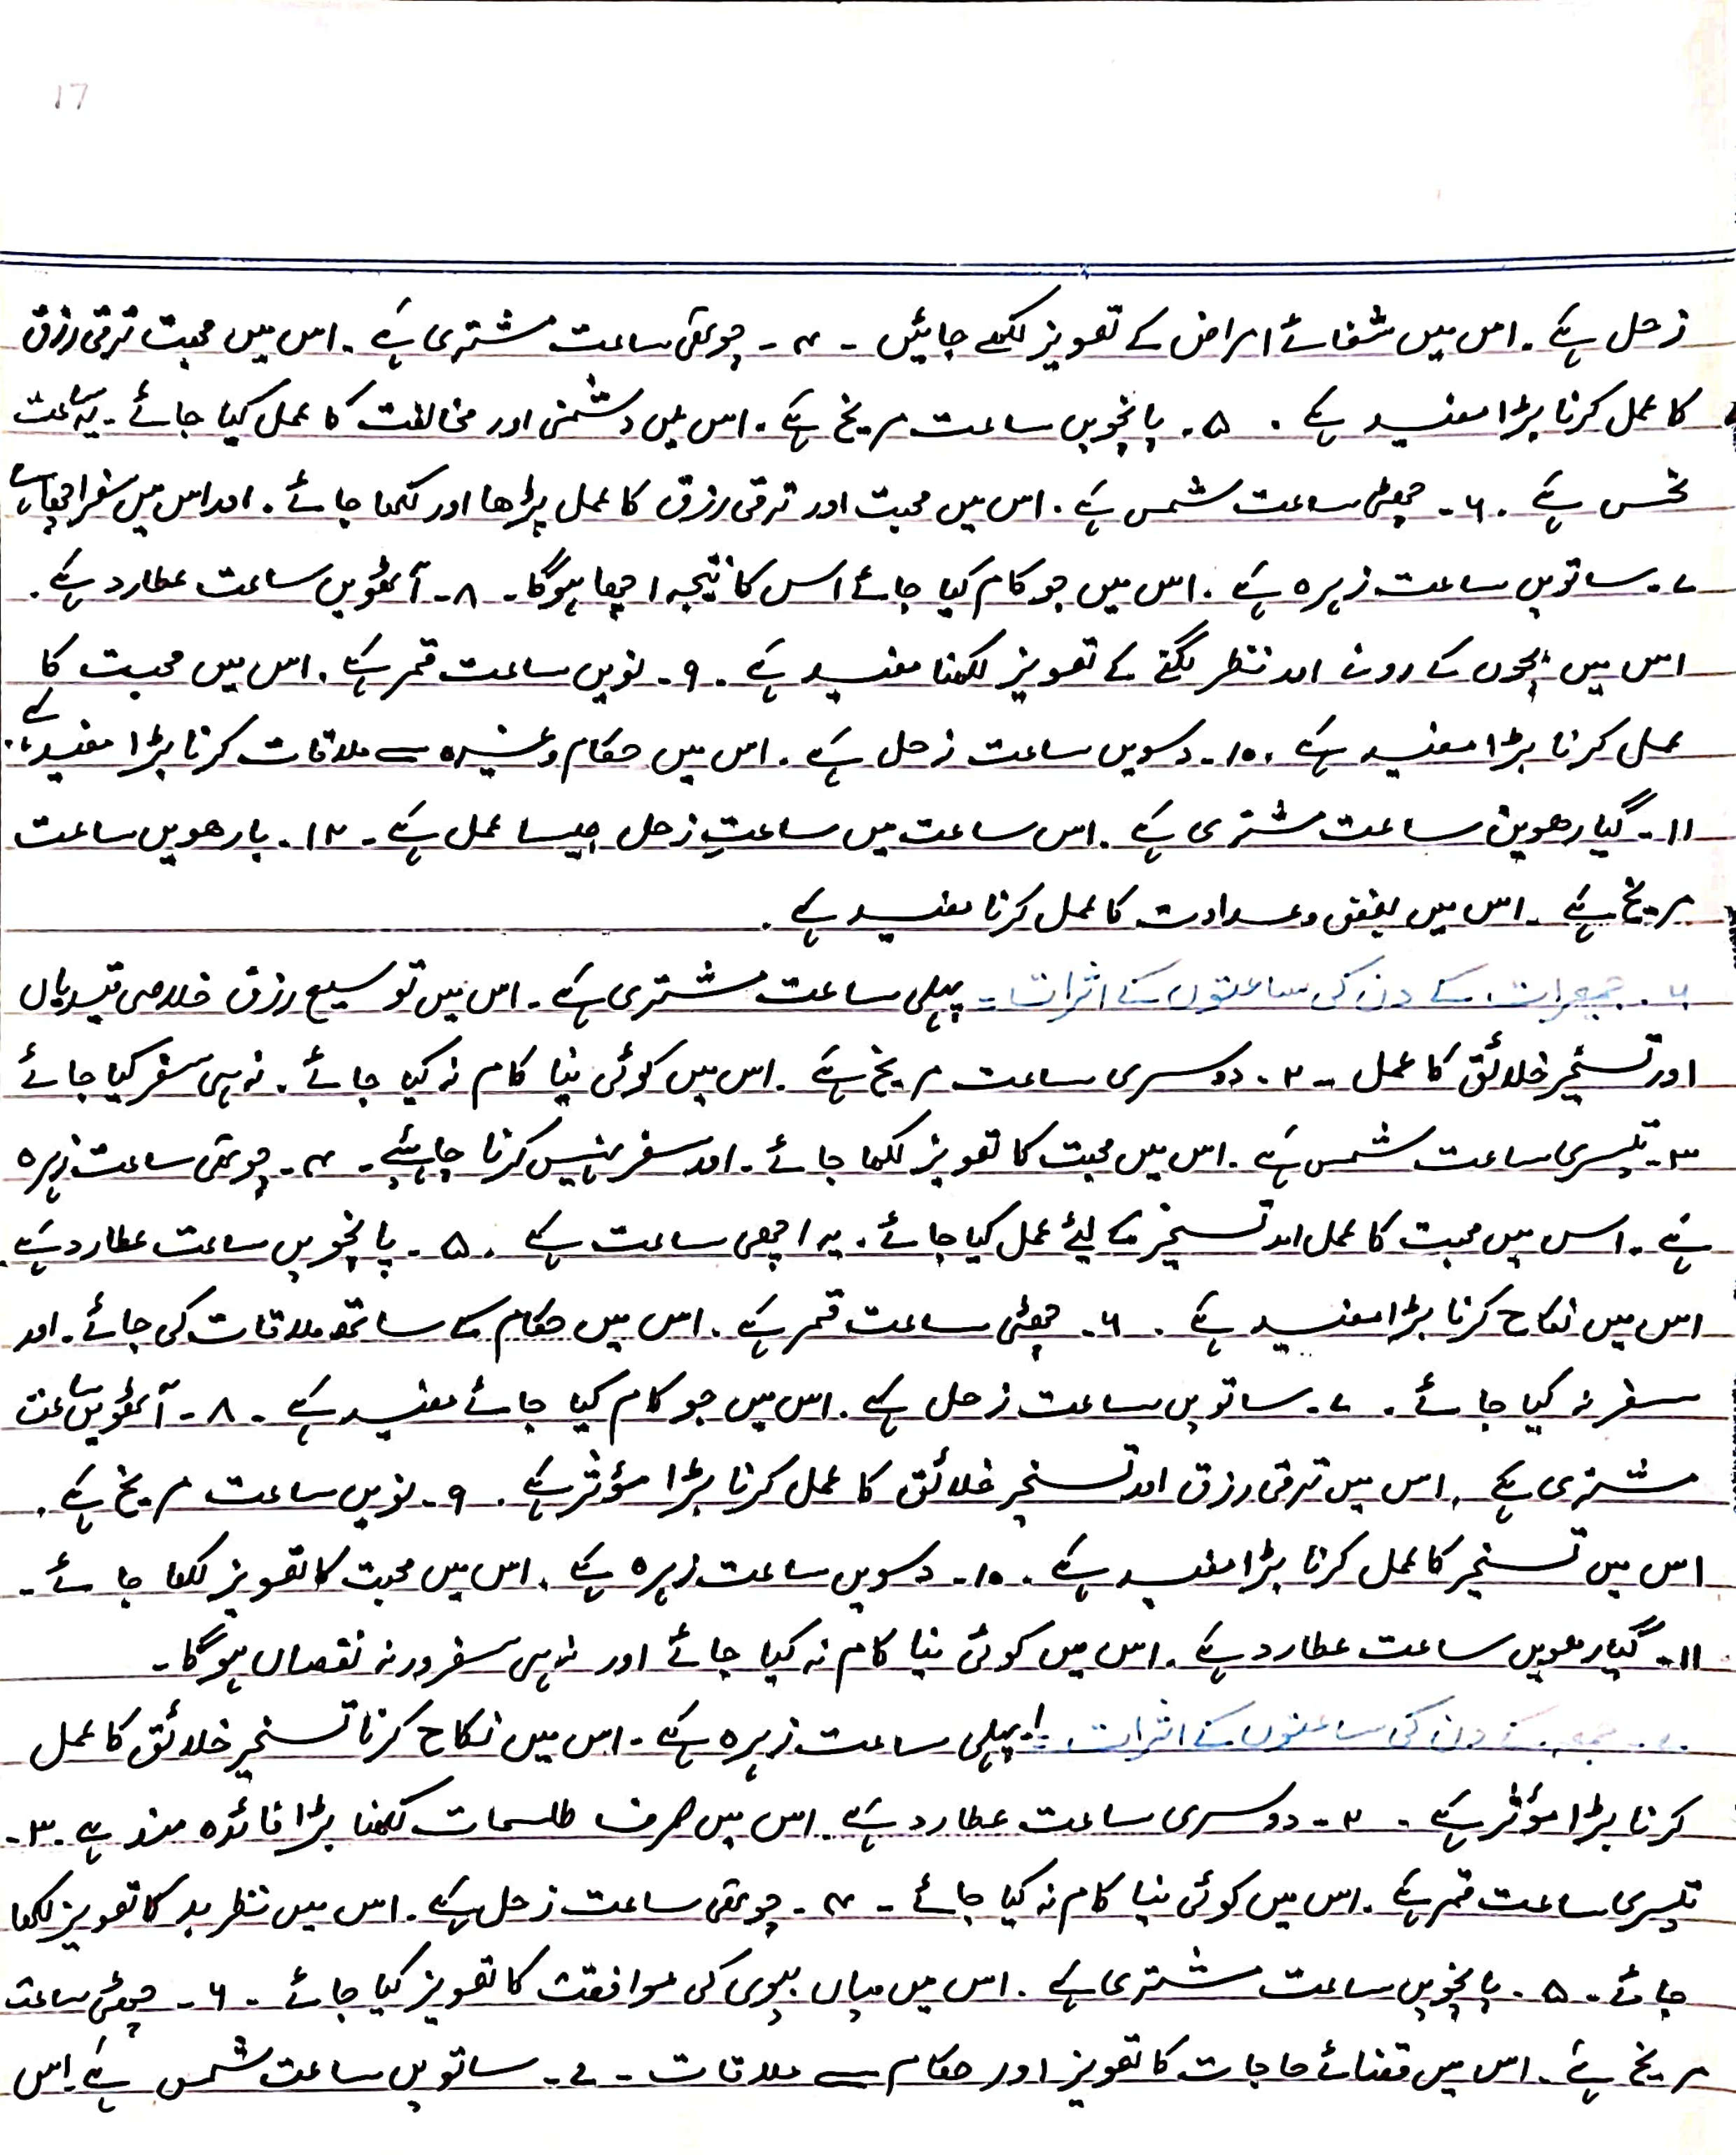 17
زحل ہے ۔ اس میں شفائے امراض کے تعویز لکھے جائیں ۔ ۴ ۔ چوتھی ساعت مشتری ہے ۔ اس میں محبت ترقی رزق
کا عمل کرنا بڑا مفید ہے ۔ ۵ ۔ پانچویں ساعت مریخ ہے ۔ اس میں دشمنی اور مخالفت کا عمل کیا جائے ۔ یہ ساعت
نحس ہے ۔ ۶ ۔ چھٹی ساعت شمس ہے ۔ اس میں محبت اور ترقی رزق کا عمل پڑھا اور لکھا جائے ۔ اور اس میں سفر اچھا ہے
۷ ۔ ساتویں ساعت زہرہ ہے ۔ اس میں جو کام کیا جائے اس کا نتیجہ اچھا ہوگا ۔ ۸ ۔ آٹھویں ساعت عطارد ہے ۔
اس میں بچوں کے رونے اور نظر لگنے کے تعویز لکھنا مفید ہے ۔ ۹ ۔ نویں ساعت قمر ہے ۔ اس میں محبت کا
عمل کرنا بڑا مفید ہے ۔ ۱۰ ۔ دسویں ساعت زحل ہے ۔ اس میں حکام وغیرہ سے ملاقات کرنا بڑا مفید ہے
۱۱ ۔ گیارھویں ساعت مشتری ہے ۔ اس ساعت میں ساعتِ زحل جیسا عمل ہے ۔ ۱۲ ۔ بارھویں ساعت
مریخ ہے ۔ اس میں بغض و عداوت کا عمل کرنا مفید ہے ۔
۶ ۔ جمعرات کے دن کی ساعتوں کے اثرات ۔ پہلی ساعت مشتری ہے ۔ اس میں توسیع رزق خلاصی قیدیاں
اور تسخیر خلائق کا عمل ۔ ۲ ۔ دوسری ساعت مریخ ہے ۔ اس میں کوئی نیا کام نہ کیا جائے ۔ نہ ہی سفر کیا جائے
۳ ۔ تیسری ساعت شمس ہے ۔ اس میں محبت کا تعویز لکھا جائے ۔ اور سفر نہیں کرنا چاہئے ۔ ۴ ۔ چوتھی ساعت زہرہ
ہے ۔ اس میں محبت کا عمل اور تسخیر کے لیئے عمل کیا جائے ۔ یہ اچھی ساعت ہے ۔ ۵ ۔ پانچویں ساعت عطارد ہے ۔
اس میں نکاح کرنا بڑا مفید ہے ۔ ۶ ۔ چھٹی ساعت قمر ہے ۔ اس میں حکام کے ساتھ ملاقات کی جائے ۔ اور
سفر نہ کیا جائے ۔ ۷ ۔ ساتویں ساعت زحل ہے ۔ اس میں جو کام کیا جائے مفید ہے ۔ ۸ ۔ آٹھویں ساعت
مشتری ہے ۔ اس میں ترقی رزق اور تسخیر خلائق کا عمل کرنا بڑا مؤثر ہے ۔ ۹ ۔ نویں ساعت مریخ ہے ۔
اس میں تسخیر کا عمل کرنا بڑا مفید ہے ۔ ۱۰ ۔ دسویں ساعت زہرہ ہے ۔ اس میں محبت کا تعویز لکھا جائے ۔
۱۱ ۔ گیارھویں ساعت عطارد ہے ۔ اس میں کوئی نیا کام نہ کیا جائے اور نہ ہی سفر ورنہ نقصان ہوگا ۔
۷ ۔ جمعہ کے دن کی ساعتوں کے اثرات ۔ ۱ ۔ پہلی ساعت زہرہ ہے ۔ اس میں نکاح کرنا تسخیر خلائق کا عمل
کرنا بڑا مؤثر ہے ۔ ۲ ۔ دوسری ساعت عطارد ہے ۔ اس میں صرف طلسمات لکھنا بڑا فائدہ مند ہے ۔ ۳ ۔
تیسری ساعت قمر ہے ۔ اس میں کوئی نیا کام نہ کیا جائے ۔ ۴ ۔ چوتھی ساعت زحل ہے ۔ اس میں نظر بد کا تعویز لکھا
جائے ۔ ۵ ۔ پانچویں ساعت مشتری ہے ۔ اس میں میاں بیوی کی موافقت کا تعویز کیا جائے ۔ ۶ ۔ چھٹی ساعت
مریخ ہے ۔ اس میں قضائے حاجات کا تعویز اور حکام سے ملاقات ۔ ۷ ۔ ساتویں ساعت شمس ہے ۔ اس